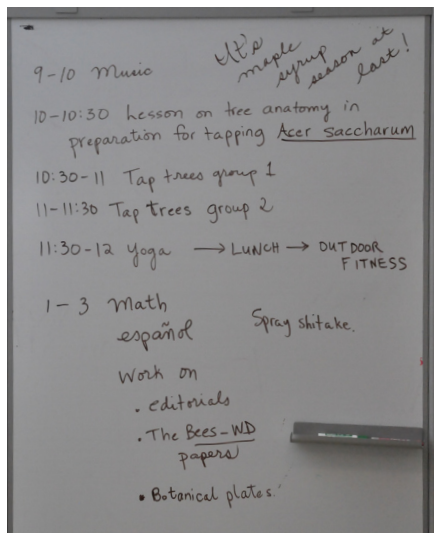 It's
maple
syrup
season at
last!
9-10 Music
10-10:30 Lesson on tree anatomy in
preparation for tapping Acer saccharum
10:30-11 Tap trees group 1
11-11:30 Tap trees group 2
11:30-12 Yoga → LUNCH → OUTDOOR
FITNESS
1-3 Math
español
Spray shitake.
Work on
• editorials
• The Bees-WD
papers
• Botanical plates.